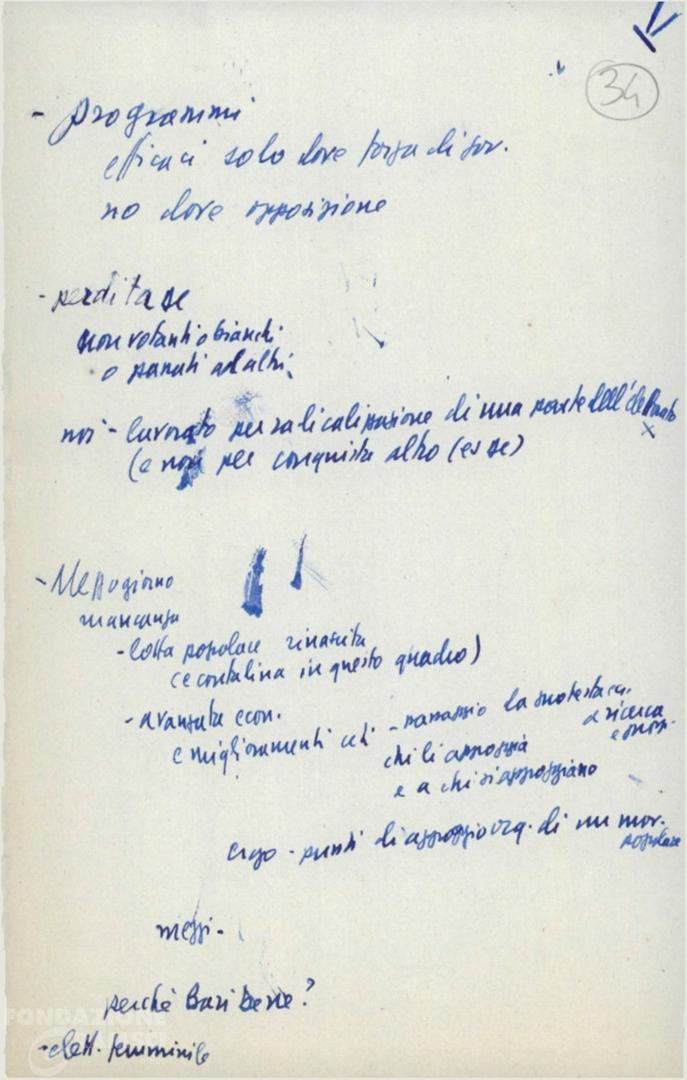 34
- programmi
efficaci solo dove forza di gov.
no dove opposizione
- perdita DC
non votanti o bianchi
o passati ad altri
noi - lavorato per radicalizzazione di una parte dell'elettorato
(e non per conquista altro (es DC)
- Mezzogiorno
mancanza
- lotta popolare rinascita
(e contadina in questo quadro)
- avanzata econ.
e miglioramenti ceti - passaggio da protesta
a ricerca
chi li appoggia
e a chi si appoggiano
ergo - punti di appoggio org. di un mov.
popolare
mezzi -
perchè Bari bene?
- elett. femminile
FONDAZIONE